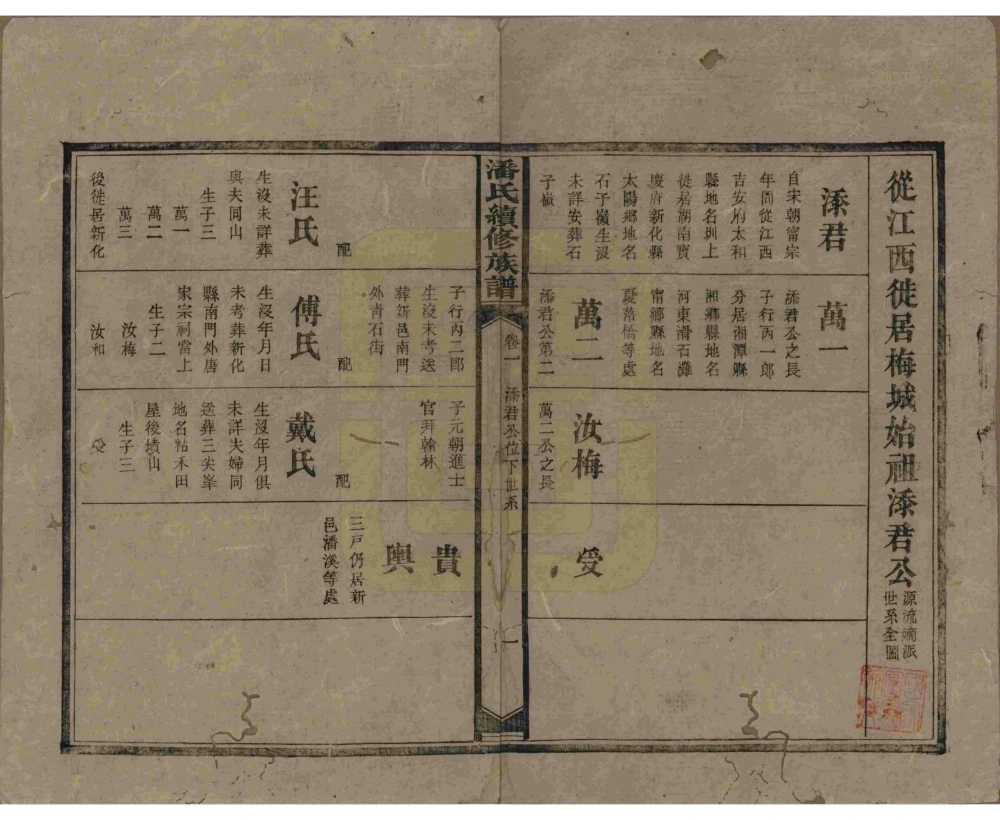 從江西徙居梅城始祖添君公
源流嫡派
世系全圖
添君
自宋朝甯宗
年間從江西
吉安府太和
縣地名圳上
徙居湖南寶
慶府新化縣
太陽鄉地名
石子嶺生沒
未詳安葬石
子嶺
萬一
添君公之長
子行丙一郎
分居湘潭縣
湘鄉縣地名
河東滑石灘
甯鄉縣地名
落橋等處
萬二
添君公第二
汝梅
萬二公之長
受
潘氏續修族譜
卷一
添君公位下世系
一
子行丙二郎
生沒未考送
葬新邑南門
外青石街
子元朝進士
官拜翰林
貴
輿
三戸仍居新
邑潘溪等處
配
汪氏
生沒未詳葬
與夫同山
生子三
萬一
萬二
萬三
後徙居新化
配
傅氏
生沒年月日
未考葬新化
縣南門外唐
家宗祠當上
生子二
汝梅
汝和
配
戴氏
生沒年月俱
未詳夫婦同
送葬三尖峯
地名粘禾田
屋後墳山
生子三
受